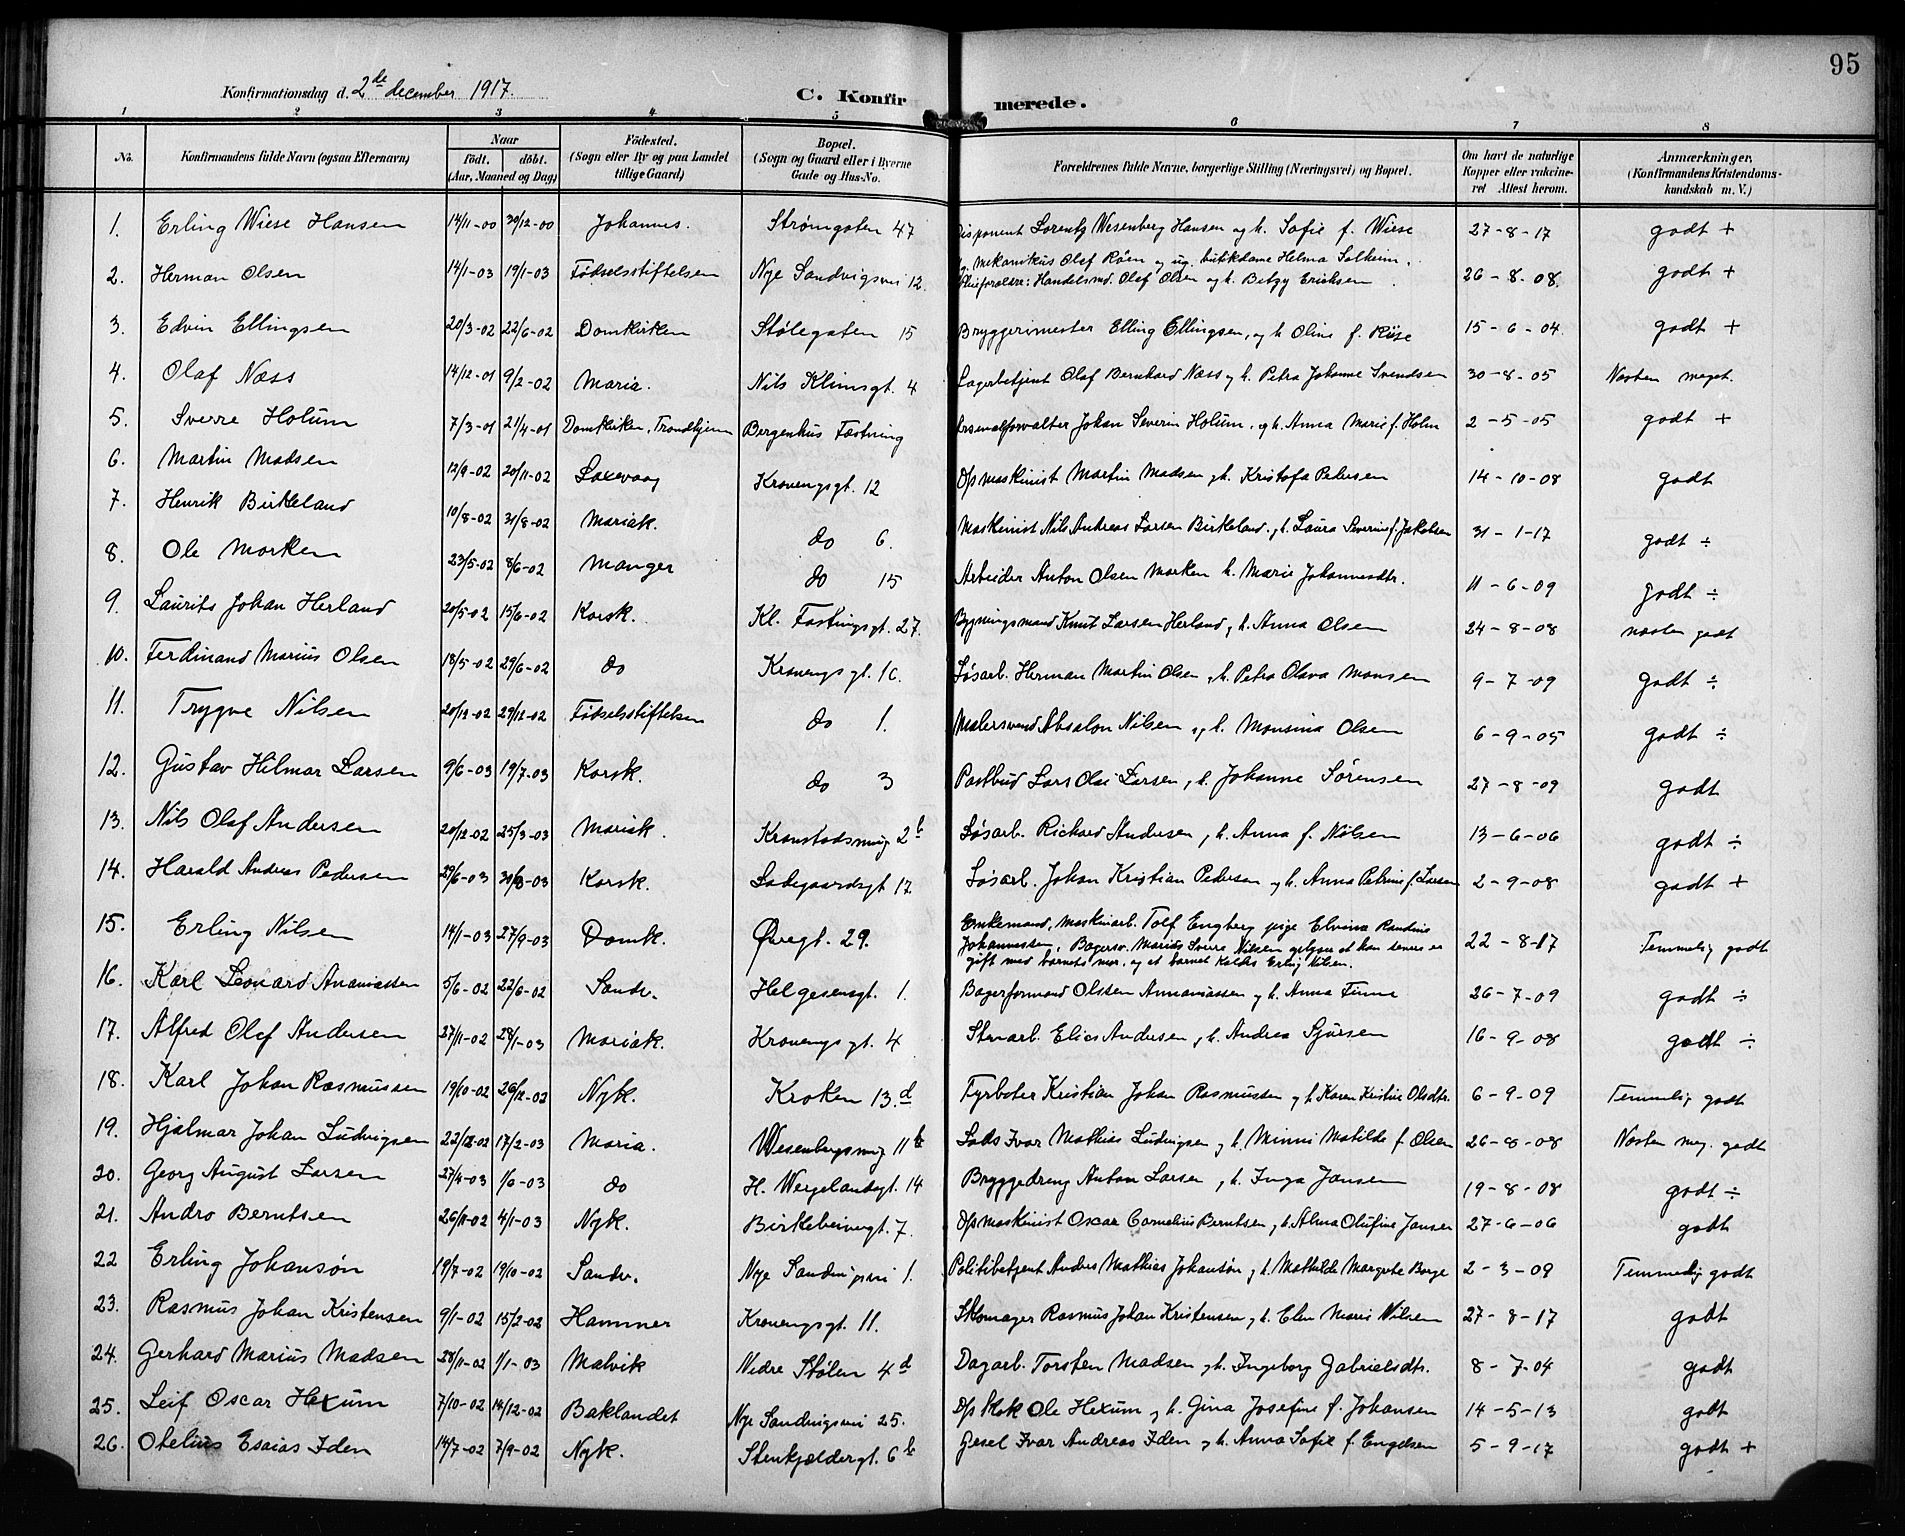 95
Konfirmationsdag d. 2de december 1917.
C. Konfirmerede.
1 2 3 4 5 6 7 8
No. Konfirmandens fulde Navn (ogsaa Efternavn) Naar født. døbt. (Aar, Maaned og Dag) Fødested. (Sogn eller By og paa Landet tillige Gaard) Bopæl. (Sogn og Gaard eller i Byerne Gade og Hus-No. Forældrenes fulde Navne, borgerlige Stilling (Næringsvei) og Bopæl. Om havt de naturlige Kopper eller vakcineret Attest herom. Anmærkninger. (Konfirmandens Kristendomskundskab m. V.)
1. Erling Wiese Hansen 14/11-00 30/12-00 Johannes. Strømgaten 47 Disponent Lorentz Wesenberg Hansen og h. Sofie f. Wiese 27-8-17 godt +
2. Herman Olsen 14/1-03 19/1-03 Fødselsstiftelsen Nye Sandvigsvei 12. mekanikus Olaf Røen og ug. butikdame Helma Solheim.
Pleieforældre: Handelsmd. Olaf Olsen og h. Betzy Ericksen 26-8-08. godt +
3. Edvin Ellingsen 20/3-02 22/6-02 Domkirken Stølegaten 15 Bryggerimester Elling Ellingsen, og h. Oline f. Riise 15-6-04. godt +
4. Olaf Næss 14/12-01 9/2-02 Maria. Nils Klimsgt. 4 Lagerbetjent Olaf Bernhard Næss og h. Petra Johanne Svendsen 30-8-05 Næsten meget.
5. Sverre Holum 7/3-01 21/4-01 Domkirken, Trondhjem Bergenhus Fæstning Arsenalforvalter Johan Severin Holum, og h. Anna Marie f. Holm 2-5-05 godt +
6. Martin Madsen 12/9-02 20/11-02 Laxevaag Kronengsgt. 12 D/s maskinist Martin Madsen og h. Kristofa Pedersen 14-10-08 godt
7. Henrik Birkeland 10/8-02 31/8-02 Mariak. do 6. Maskinist Nils Andreas Larsen Birkeland og h. Laura Severine f. Jakobsen 31-1-17 godt ÷
8. Ole Morken 23/5-02 8/6-02 Manger do 15 Arbeider Anton Olsen Morken h. Marie Johannesdtr. 11-6-09 godt ÷
9. Laurits Johan Herland 20/5-02 15/6-02 Korsk. Kl. Fastingsgt. 27. Bygningsmand Knut Larsen Herland og h. Anna Olsen 24-8-08 næsten godt
10. Ferdinand Marius Olsen 18/5-02 29/6-02 do Kronengsgt. 16. Løsarb. Herman Martin Olsen og h. Petra Olava Monsen 9-7-09 godt ÷
11. Trygve Nilsen 20/12-02 29/12-02 Fødselsstiftelsen do 1. Malersvend Absalon Nilsen og h. Monsina Olsen 6-9-05 godt ÷
12. Gustav Hilmar Larsen 9/6-03 19/7-03 Korsk. do 3 Postbud Lars Olai Larsen og h. Johanne Sørensen 27-8-09 godt
13. Nils Olaf Andersen 20/12-02 25/3-03 Mariak. Kronstadsmug 2b Løsarb. Richard Andersen og h. Anna f. Nilsen 13-6-06 godt ÷
14. Harald Andreas Pedersen 29/6-03 30/8-03 Korsk. Ladegaardsgt 17 Løsarb. Johan Kristian Pedersen og h. Anna Petrine f. Larsen 2-9-08 godt +
15. Erling Nilsen 14/1-03 27/9-03 Domk. Øvregt. 29. Enkemand, maskinarb. Tolf Engberg pige Elvina Randine
Johannessen, Bagersv. Marius Sverre Nilsen oplyser at han senere er
gift med barnets mor, og at barnet kaldes Erling Nilsen. 22-8-17 Temmelig godt
16. Karl Leonard Ananiassen 5/6-02 22/6-02 Sandv. Helgesensgt. 1. Bagerformand Olsten Annaniassen og h. Anna Finne 26-7-09 godt ÷
17. Alfred Olaf Andersen 27/11-02 28/1-03 Mariak. Kronengsgt. 4 Stenarb. Elias Andersen og h. Andrea Sjursen 16-9-08 godt ÷
18. Karl Johan Rasmussen 19/10-02 26/12-02 Nyk. Kroken 13.d Fyrbøter Kristian Johan Rasmussen og h. Karen Kristine Olsdtr. 6-9-09 Temmelig godt
19. Hjalmar Johan Ludvigsen 22/12-02 17/2-03 Maria. Wesenbergsmug 11b Lods Ivar Mathias Ludvigsen og h. Minni Matilde f. Olsen 26-8-08 Næsten meg. godt
20. Georg August Larsen 27/4-03 1/6-03 do H. Wergelandsgt. 14 Bryggedreng Anton Larsen og h. Inga Jansen 19-8-08 godt ÷
21. Andro Berntsen 26/11-02 4/1-03 Nyk. Birkebeinergt. 7. D/s maskinist Oscar Cornelius Berntsen og h. Alma Olufine Jansen 27-6-06 godt
22 Erling Johansøn 19/7-02 19/10-02 Sandv. Nye Sandvigsvei 1. Politibetjent Andres Mathias Johansøn og h. Mathilde Margrete Borge 2-3-09 Temmelig godt
23. Rasmus Johan Kristensen 9/1-02 15/2-02 Hammer Kronengsgt. 11. Skomager Rasmus Johan Kristensen og h. Elen Marie Nilsen 27-8-17 godt
24. Gerhard Marius Madsen 28/11-02 1/1-03 Malvik Nedre Stølen 4d Dagarb. Torsten Madsen og h. Ingeborg Gabrielsdtr. 8-7-04 godt
25. Leif Oscar Hexum 7/10-02 14/12-02 Baklandet Nye Sandvigsvei 25. D/s kok Ole Hexum og h. Gina Josefine f. Johansen 14-5-13 godt
26. Otelius Esaias Iden 14/7-02 7/9-02 Nyk. Stenkjældergt. 6b Gesel Ivar Andreas Iden og h. Anna Sofie f. Engelsen 5-9-17 godt +